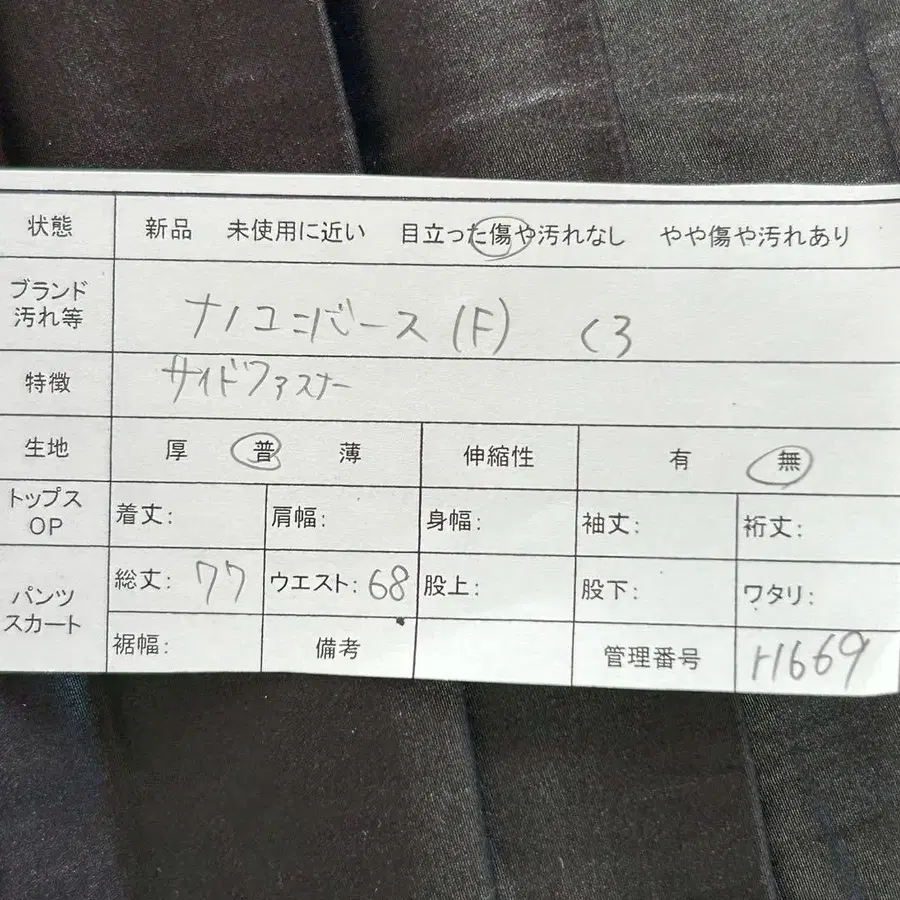 状態 新品 未使用に近い 目立った傷や汚れなし やや傷や汚れあり
ブランド 汚れ等 ナノユニバース (F) く3
特徴 サイドファスナー
生地 厚 普 薄 伸縮性 有 無
トップス OP 着丈: 肩幅: 身幅: 袖丈: 裄丈:
パンツ スカート 総丈: 77 ウエスト: 68 股上: 股下: ワタリ:
裾幅: 備考 管理番号 H1669